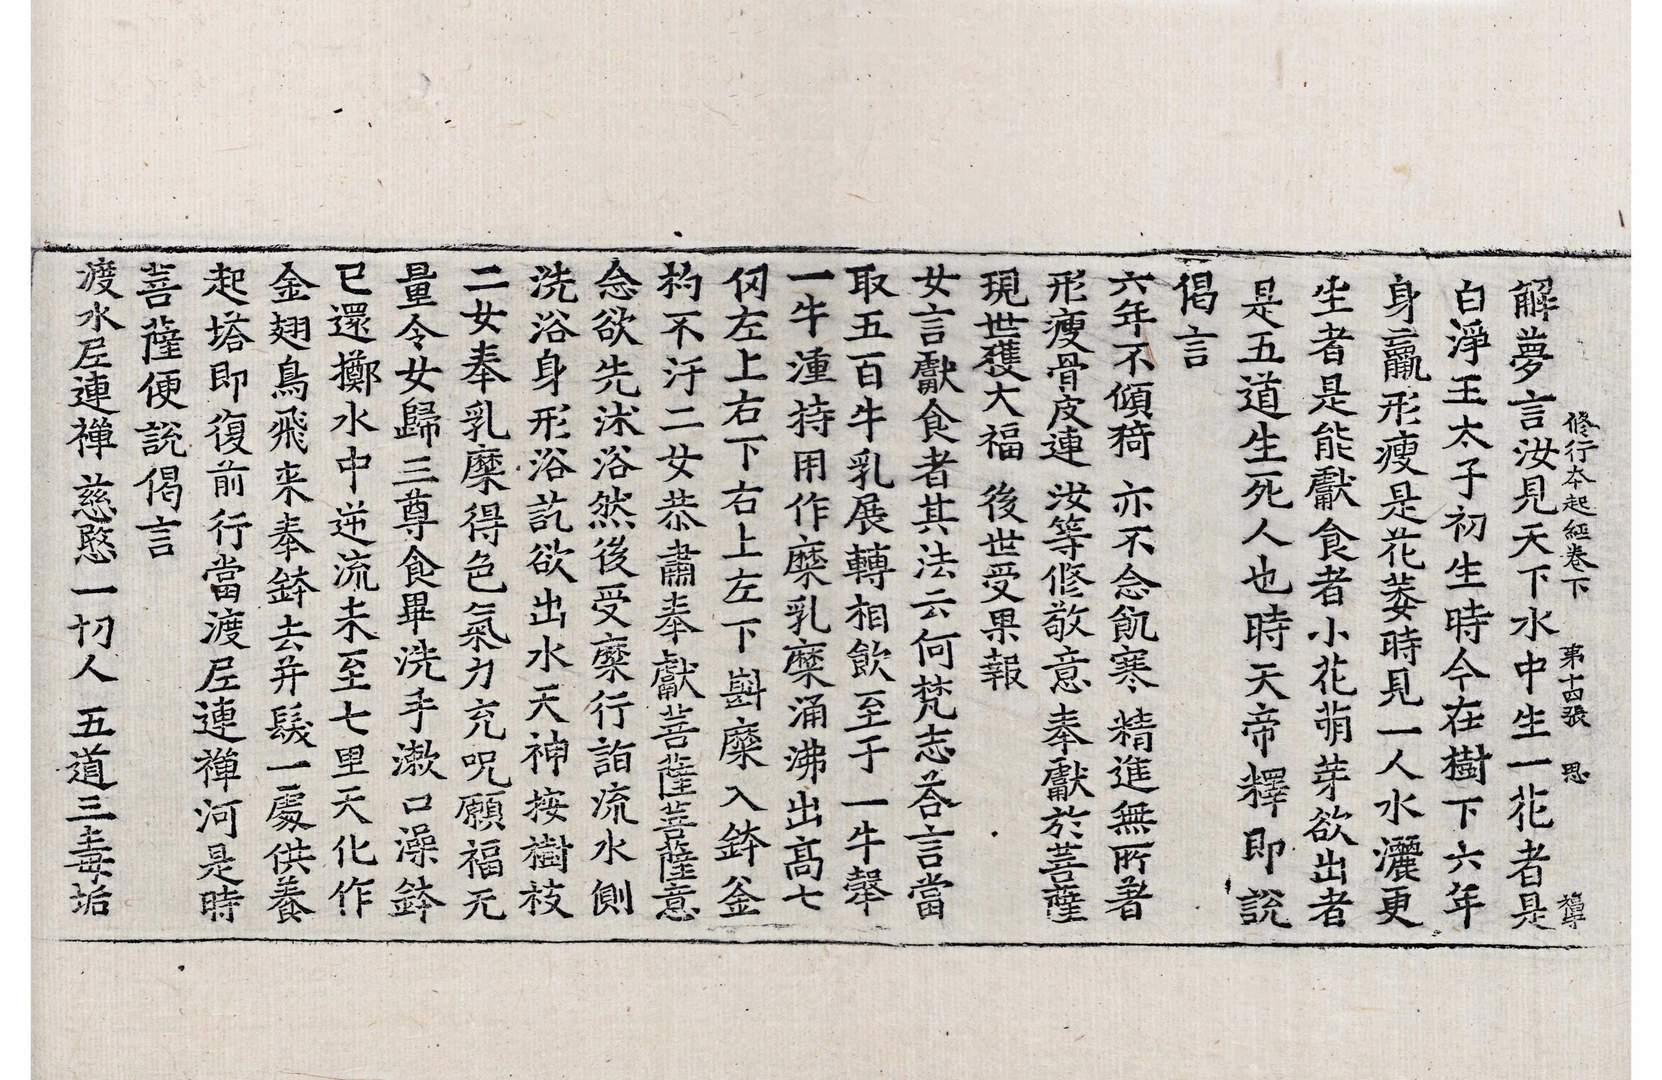 修行本起經卷下 第十四張 思
解夢言汝見天下水中生一花者是
白淨王太子初生時今在樹下六年
身羸形瘦是花萎時見一人水灑更
生者是能獻食者小花萌芽欲出者
是五道生死人也時天帝釋即說
偈言
六年不傾猗 亦不念飢寒 精進無所著
形瘦骨皮連 汝等修敬意 奉獻於菩薩
現世獲大福 後世受果報
女言獻食者其法云何梵志荅言當
取五百牛乳展轉相飲至于一牛㲉
一牛湩持用作糜乳糜涌沸出高七
仞左上右下右上左下㪷糜入鉢釜
杓不汙二女恭肅奉獻菩薩菩薩意
念欲先沐浴然後受糜行詣流水側
洗浴身形浴訖欲出水天神按樹枝
二女奉乳糜得色氣力充呪願福无
量令女歸三尊食畢洗手漱口澡鉢
已還擲水中逆流未至七里天化作
金翅鳥飛来奉鉢去并髮一處供養
起塔即復前行當渡尼連禪河是時
菩薩便說偈言
渡水尼連禪 慈愍一切人 五道三毒垢